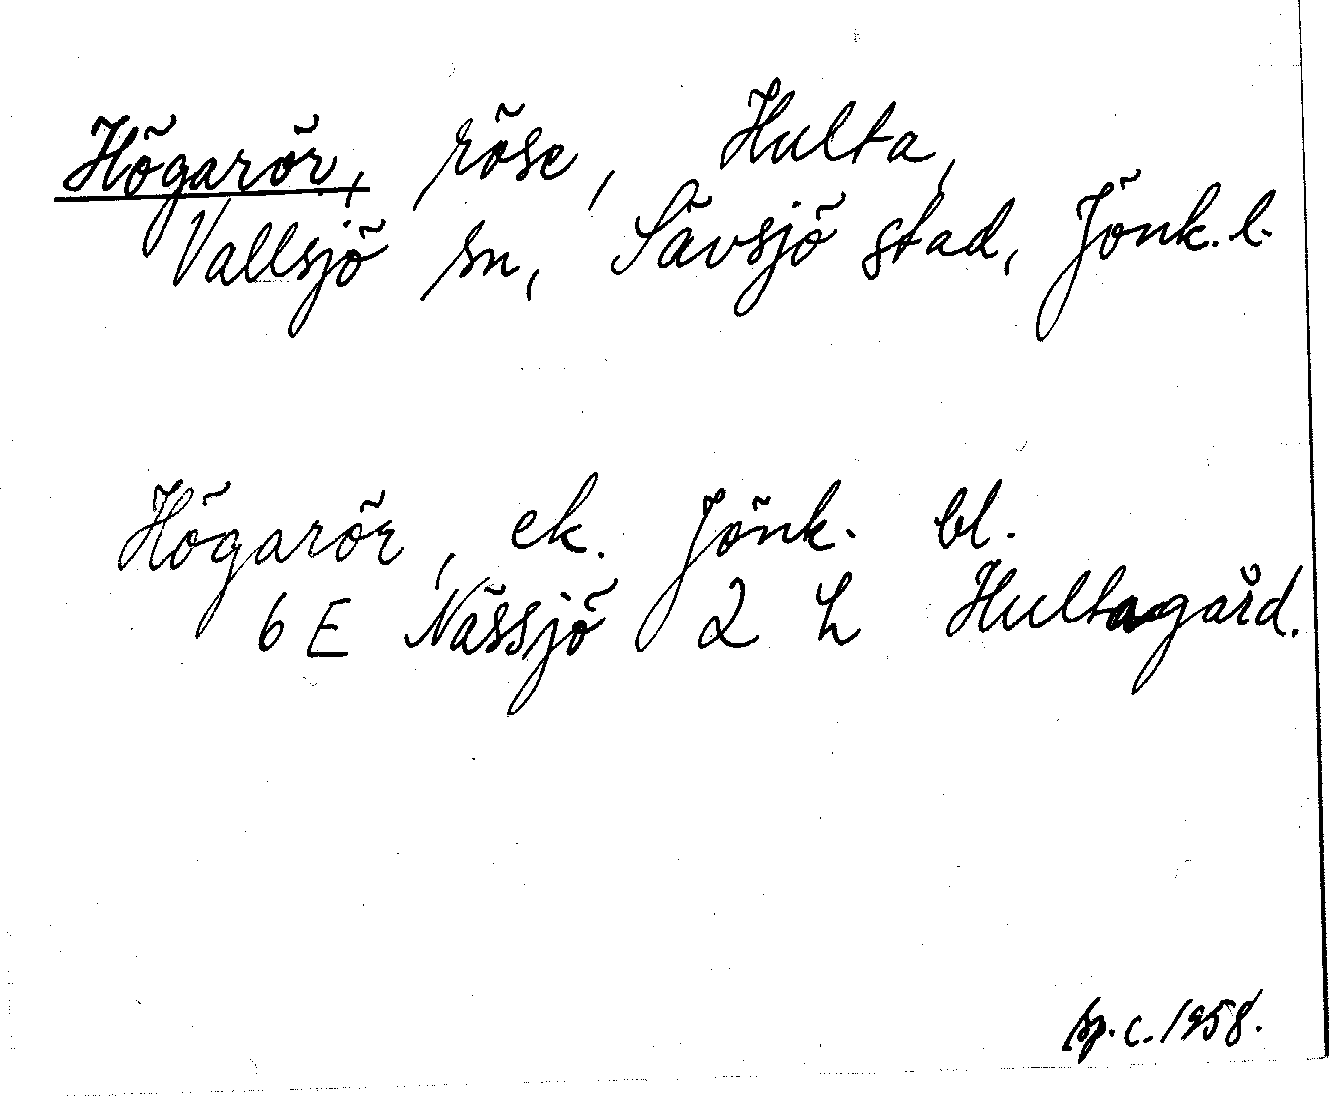 Högarör, röse, Hulta,
Vallsjö sn, Sävsjö stad, Jönk. l.
Högarör, ek. Jönk. bl.
6 E Nässjö 2 h Hultagård.
sp. c. 1958.